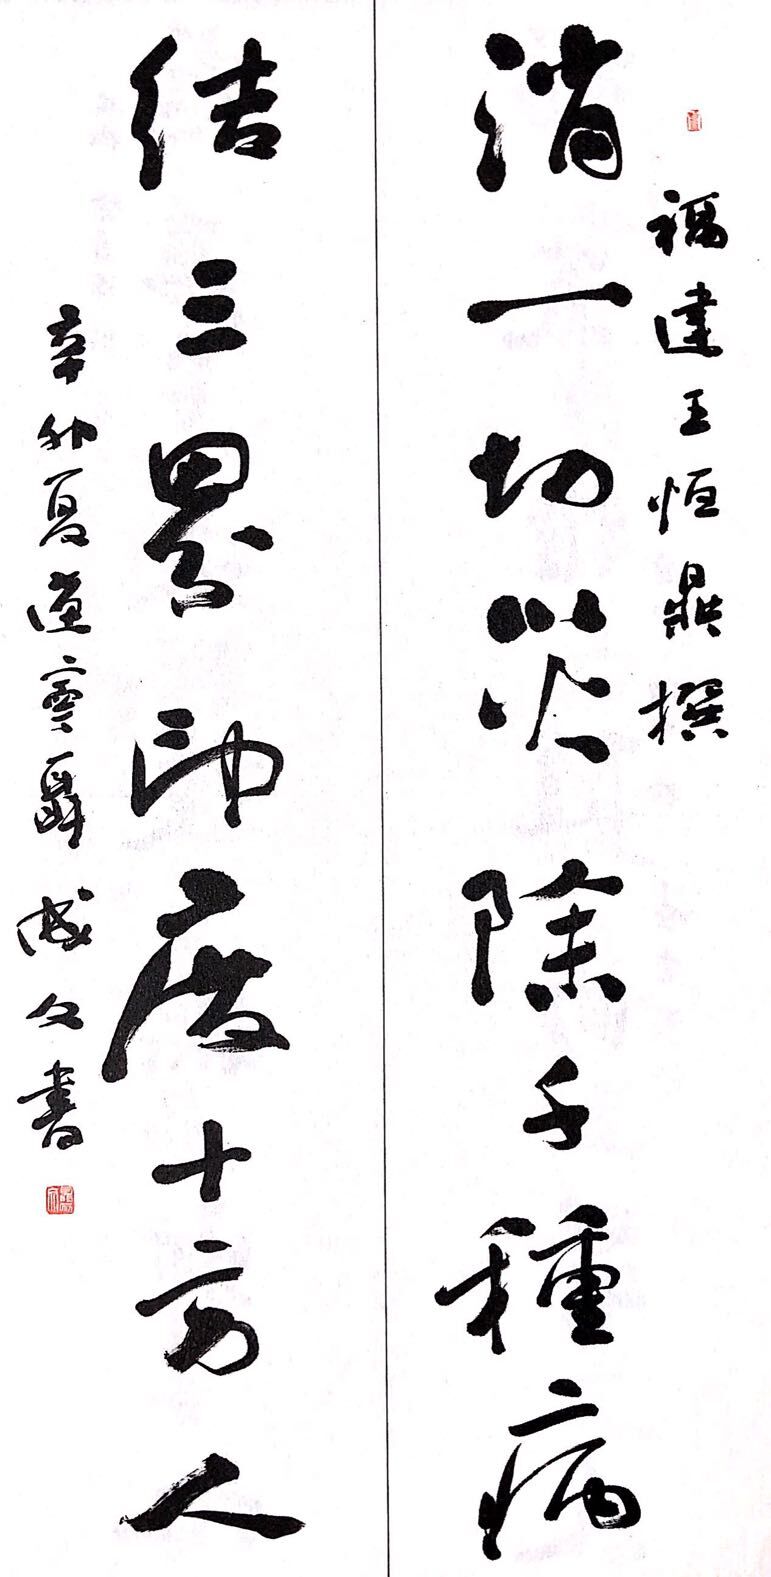 福建王恒鼎撰
消一切災除千種病
結三界印度十方人
辛卯夏蓮寧聶成文書